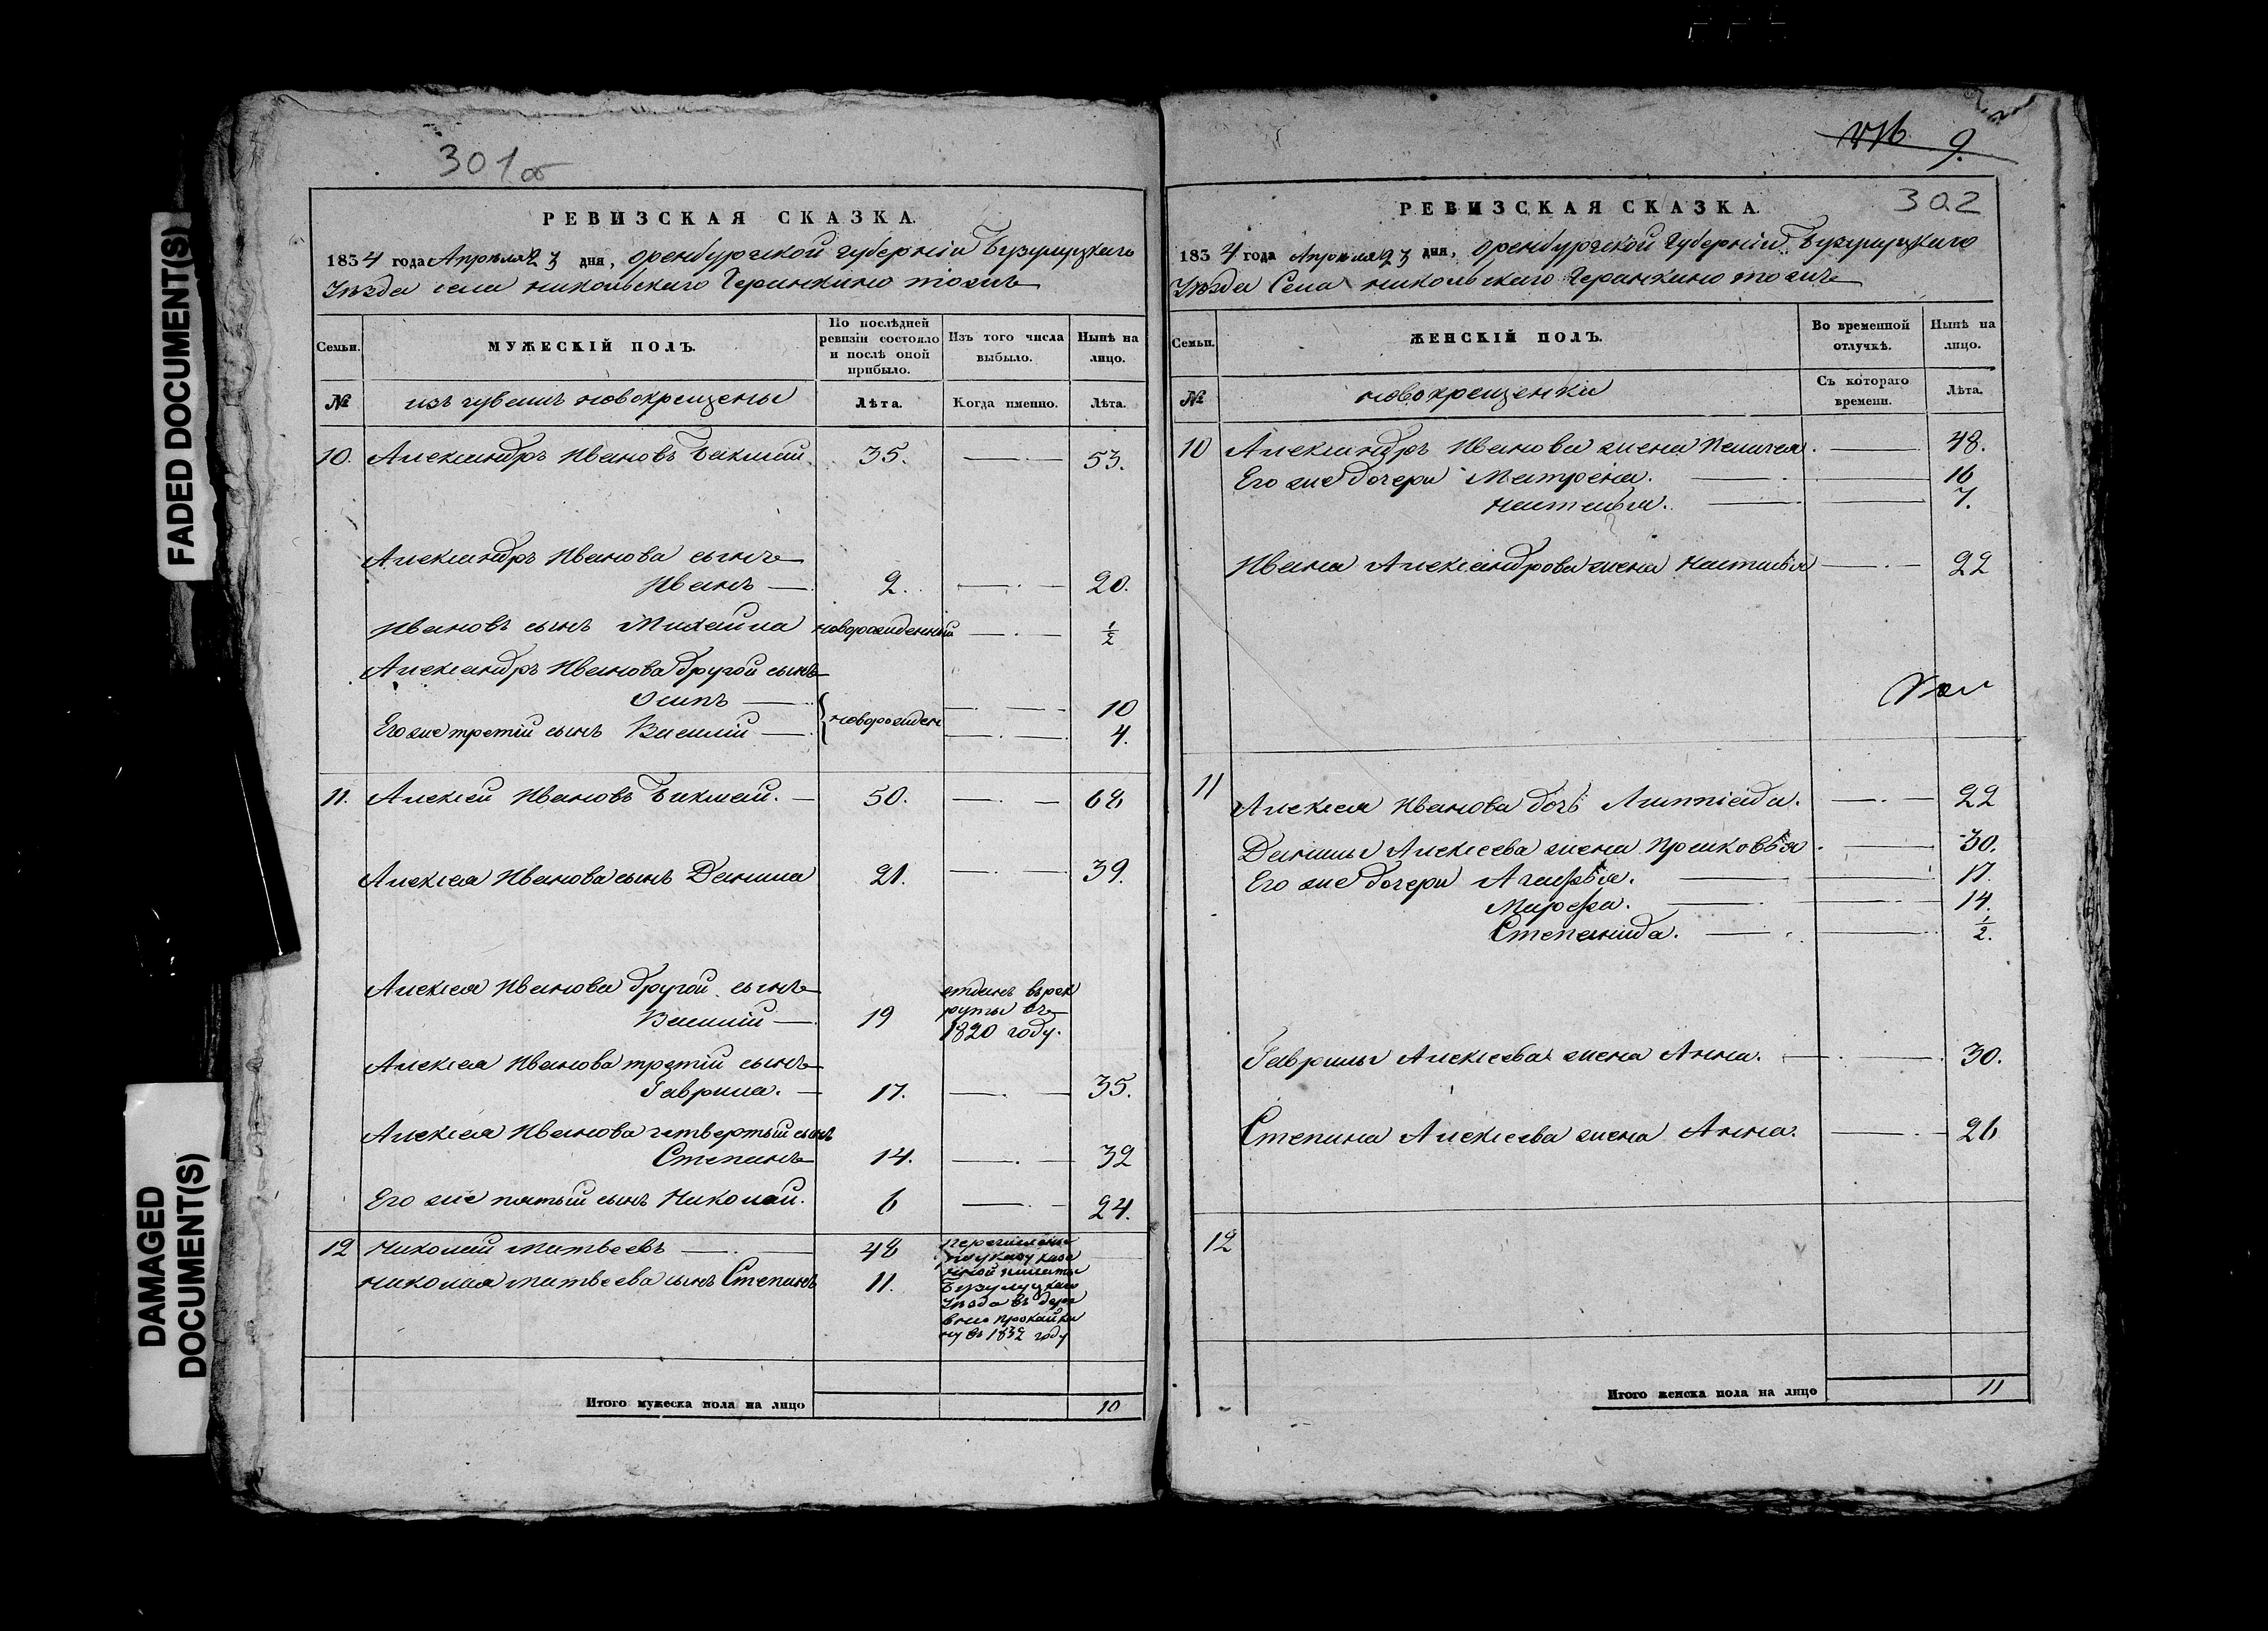 FADED DOCUMENT(S)
DAMAGED
DOCUMENT(S)
301об
РЕВИЗСКАЯ СКАЗКА.
1834 года Апреля 23 дня, Оренбургской губерніи Бузулуцкаго
Уезда села Никольскаго Геранкино тожъ
Семьи.
МУЖЕСКІЙ ПОЛЪ.
По послѣдней ревизіи состояло и послѣ оной прибыло.
Изъ того числа выбыло.
Нынѣ на лицо.
№
изъ чувашъ новокрещены
Лѣта.
Когда именно.
Лѣта.
10. Александръ Ивановъ Бикмай. 35. 53.
Александръ Иванова сынъ
Иванъ 2. 20.
Ивановъ сынъ Михайла новорожденный ½
Александръ Иванова другой сынъ
Осипъ 10
новорожден
Его же третій сынъ Василій 4.
11. Алексей Ивановъ Бикмай. 50. 68
Алексея Иванова сынъ Данила 21. 39.
Алексея Иванова другой сынъ
Василій 19
отданъ въ рек
руты въ
1820 году.
Алексея Иванова третій сынъ
Гаврила. 17. 35.
Алексея Иванова четвертый сынъ
Степанъ 14. 32
Его же пятый сынъ Николай. 6 24.
12 Николай Матвеевъ 48
Николая Матвеева сынъ Степанъ 11.
перечислены
по указу казе
нной палаты
Бузулуцкаго
Уезда въ дере
вню Прокайки
ну въ 1832 году
Итого мужеска пола на лицо 10
9.
302
РЕВИЗСКАЯ СКАЗКА.
1834 года Апреля 23 дня, Оренбургской Губерніи Бузулуцкаго
Уезда Села Никольскаго Геранкино тожъ
Семьи.
ЖЕНСКІЙ ПОЛЪ.
Во временной отлучкѣ.
Нынѣ на лицо.
№
новокрещенки
Съ котораго времени.
Лѣта.
10 Александръ Иванова жена Пелагея. 48.
Его же дочери Матрена. 16
Настасья. 7.
Ивана Александрова жена Настасья 22
11
Алексея Иванова дочь Лимпіада. 22
Данилы Алексеева жена Прасковья. 30.
Его же дочери Агафья. 17.
Марфа. 14.
Степанида. ½.
Гаврилы Алексеева жена Анна. 30.
Степана Алексеева жена Анна. 26
12
Итого женска пола на лицо 11